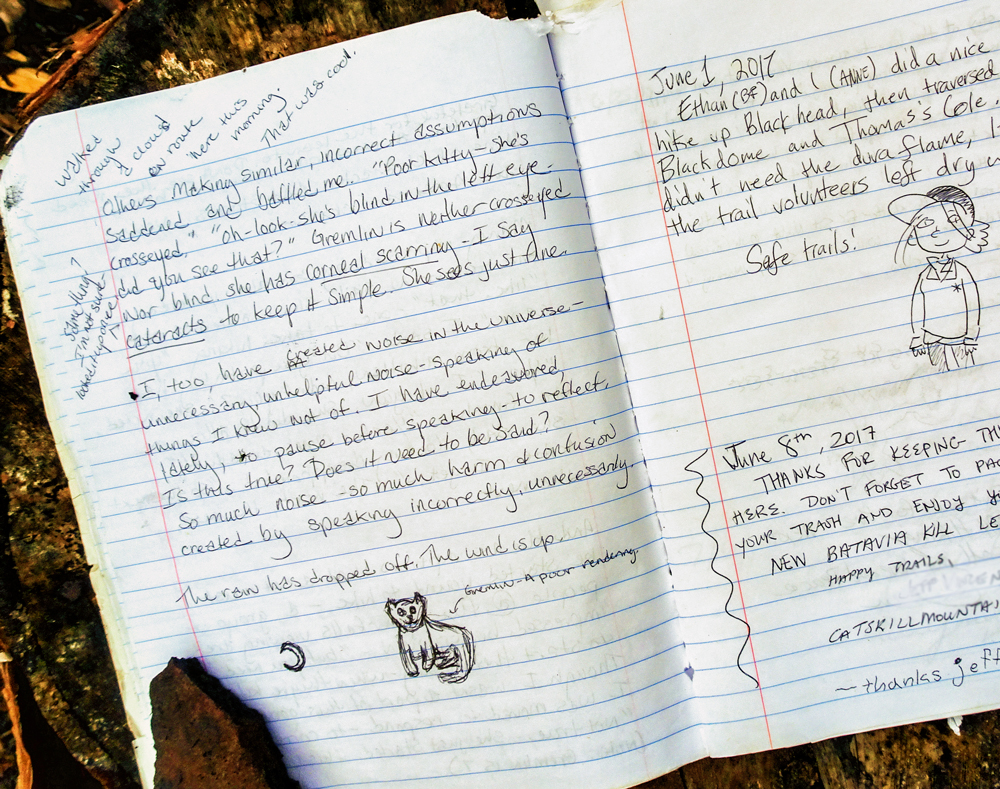 Walked
through
a cloud
en route
here this
morning.
That was cool.
Others making similar, incorrect assumptions
saddened and baffled me. "Poor kitty-she's
crosseyed." "oh-look-she's blind in the left eye-
did you see that?" Gremlin is neither crosseyed
nor blind. she has corneal scarring - I say
cataracts to keep it simple. She sees just fine.
Same thing?
I'm not sure
I, too, have created noise in the universe -
unnecessary, unhelpful noise - speaking of
things I know not of. I have endeavored,
lately, to pause before speaking - to reflect,
Is this true? Does it need to be said?
So much noise - so much harm & confusion
created by speaking incorrectly, unnecessarily.
The rain has dropped off. The wind is up.
Gremlin - A poor rendering.
June 1, 2017
Ethan (BF) and I (ANNE) did a nice
hike up Blackhead, then traversed
Blackdome and Thomas's Cole.
didn't need the duraflame,
the trail volunteers left dry
Safe trails!
June 8th, 2017
THANKS FOR KEEPING
HERE. DON'T FORGET TO
YOUR TRASH AND ENJOY
NEW BATAVIA KILL
HAPPY TRAILS,
CATSKILLMOUNTAI
- thanks jeff